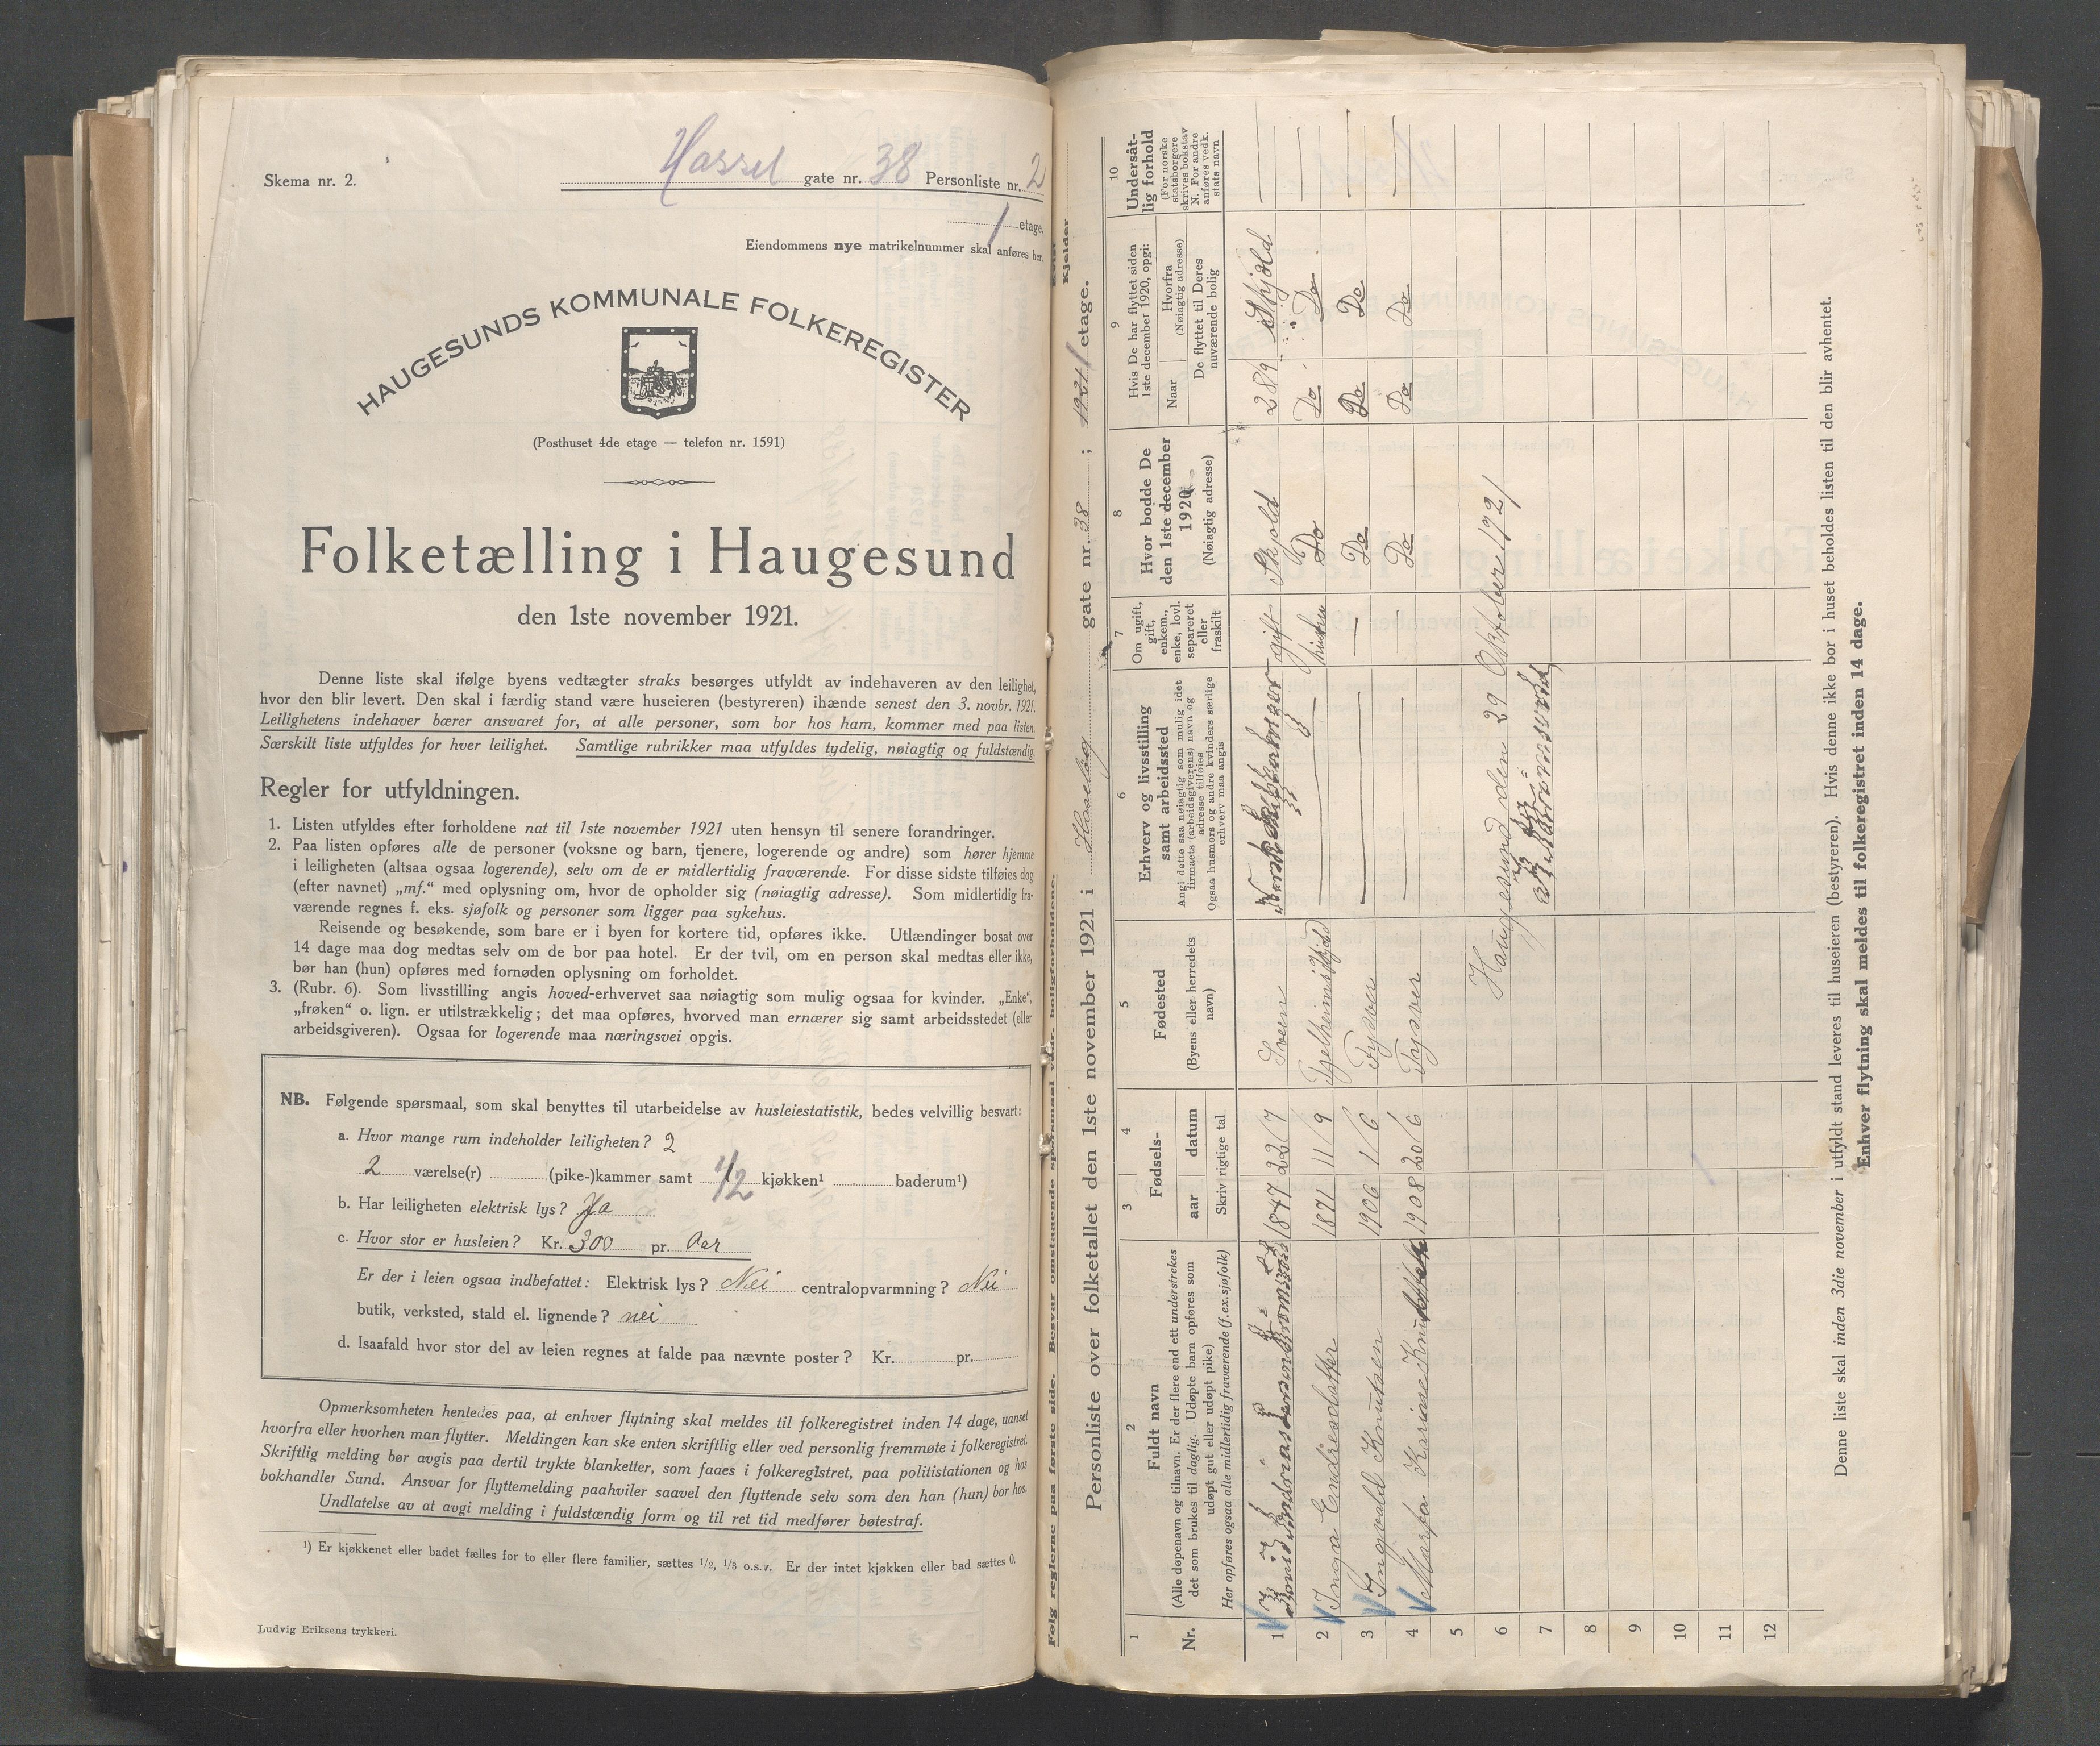 Skema nr. 2.
Hassel gate nr. 38 Personliste nr. 2
1 etage.
Eiendommens nye matrikelnummer skal anføres her.
HAUGESUNDS KOMMUNALE FOLKEREGISTER
(Posthuset 4de etage — telefon nr. 1591)
Folketælling i Haugesund
den 1ste november 1921.
Denne liste skal ifølge byens vedtægter straks besørges utfyldt av indehaveren av den leilighet,
hvor den blir levert. Den skal i færdig stand være huseieren (bestyreren) ihænde senest den 3. novbr. 1921.
Leilighetens indehaver bærer ansvaret for, at alle personer, som bor hos ham, kommer med paa listen.
Særskilt liste utfyldes for hver leilighet. Samtlige rubrikker maa utfyldes tydelig, nøiagtig og fuldstændig.
Regler for utfyldningen.
1. Listen utfyldes efter forholdene nat til 1ste november 1921 uten hensyn til senere forandringer.
2. Paa listen opføres alle de personer (voksne og barn, tjenere, logerende og andre) som hører hjemme
i leiligheten (altsaa ogsaa logerende), selv om de er midlertidig fraværende. For disse sidste tilføies dog
(efter navnet) „mf.“ med oplysning om, hvor de opholder sig (nøiagtig adresse). Som midlertidig fra-
værende regnes f. eks. sjøfolk og personer som ligger paa sykehus.
Reisende og besøkende, som bare er i byen for kortere tid, opføres ikke. Utlændinger bosat over
14 dage maa dog medtas selv om de bor paa hotel. Er der tvil, om en person skal medtas eller ikke,
bør han (hun) opføres med fornøden oplysning om forholdet.
3. (Rubr. 6). Som livsstilling angis hoved-erhvervet saa nøiagtig som mulig ogsaa for kvinder. „Enke“,
„frøken“ o. lign. er utilstrækkelig; det maa opføres, hvorved man ernærer sig samt arbeidsstedet (eller
arbeidsgiveren). Ogsaa for logerende maa næringsvei opgis.
NB. Følgende spørsmaal, som skal benyttes til utarbeidelse av husleiestatistik, bedes velvillig besvart:
a. Hvor mange rum indeholder leiligheten? 2
2 værelse(r) (pike-)kammer samt 1/2 kjøkken¹ baderum¹)
b. Har leiligheten elektrisk lys? Ja
c. Hvor stor er husleien? Kr. 300 pr. Aar
Er der i leien ogsaa indbefattet: Elektrisk lys? Nei centralopvarmning? Nei
butik, verksted, stald el. lignende? nei
d. Isaafald hvor stor del av leien regnes at falde paa nævnte poster? Kr. pr.
Opmerksomheten henledes paa, at enhver flytning skal meldes til folkeregistret inden 14 dage, uanset
hvorfra eller hvorhen man flytter. Meldingen kan ske enten skriftlig eller ved personlig fremmøte i folkeregistret.
Skriftlig melding bør avgis paa dertil trykte blanketter, som faaes i folkeregistret, paa politistationen og hos
bokhandler Sund. Ansvar for flyttemelding paahviler saavel den flyttende selv som den han (hun) bor hos.
Undlatelse av at avgi melding i fuldstændig form og til ret tid medfører bøtestraf.
¹) Er kjøkkenet eller badet fælles for to eller flere familier, sættes 1/2, 1/3 o.s.v. Er der intet kjøkken eller bad sættes 0.
Ludvig Eriksens trykkeri.
Følg reglerne paa første side. Besvar omstaaende spørsmaal vedr. boligforholdene.
Kvist
Kjelder
Personliste over folketallet den 1ste november 1921 i gate nr. 38 ; 1 etage.
1 2 3 4 5 6 7 8 9 10
Nr.
Fuldt navn
(Alle døpenavn og tilnavn. Er der flere end ett understrekes
det som brukes til daglig. Udøpte barn opføres som
udøpt gut eller udøpt pike)
Her opføres ogsaa alle midlertidig fraværende (f. ex. sjøfolk)
Fødsels-
aar datum
Skriv rigtige tal
Fødested
(Byens eller herredets
navn)
Erhverv og livsstilling
samt arbeidssted
Angi dette saa nøiagtig som mulig idet
firmaets (arbeidsgiverens) navn og
adresse tilføies
Ogsaa husmors og andre kvinders særlige
erhverv maa angis
Om ugift,
gift,
enkem.,
enke, lovl.
separeret
eller
fraskilt
Hvor bodde De
den 1ste december
1920
(Nøiagtig adresse)
Hvis De har flyttet siden
1ste december 1920, opgi:
Naar
Hvorfra
(Nøiagtig adresse)
De flyttet til Deres
nuværende bolig
Undersåt-
lig forhold
(For norske
statsborgere
skrives bokstav
N. For andre
anføres vedk.
stats navn
1 1847 22/7 Sveen gift Skjold Skjold
2 Inga Endresdatter 1871 11/9 Do Do Do
3 Ingvald Knutsen 1906 1/6 Tysvær Do Do Do
4 Marta Karine 1908 20/6 Tysvær Do Do Do
5
6 Haugesund den 29 Oktober 1921
7
8
9
10
11
12
Denne liste skal inden 3die november i utfyldt stand leveres til huseieren (bestyreren). Hvis denne ikke bor i huset beholdes listen til den blir avhentet.
Enhver flytning skal meldes til folkeregistret inden 14 dage.